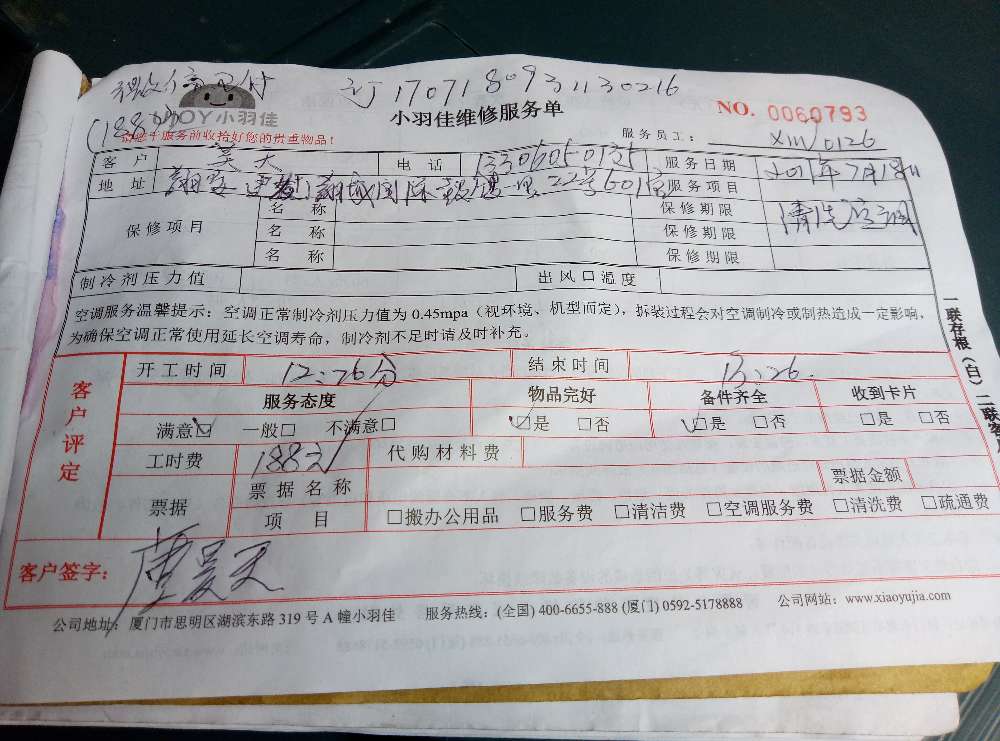 微信已付 订1707180931130216
(188元) JOY小羽佳 小羽佳维修服务单 NO. 0060793
服务前收拾好您的贵重物品！ 服务员工： XM/0126
客户 昊天 电话 13306050125 服务日期 2017年7月18日
地址 22号601室 服务项目 清洗空调
保修项目 名称 保修期限
名称 保修期限
名称 保修期限
制冷剂压力值 出风口温度
空调服务温馨提示：空调正常制冷剂压力值为 0.45mpa（视环境、机型而定），拆装过程会对空调制冷或制热造成一定影响，
为确保空调正常使用延长空调寿命，制冷剂不足时请及时补充。
客户评定 开工时间 12:26分 结束时间 13:26.
服务态度 物品完好 备件齐全 收到卡片
满意□ 一般□ 不满意□ □是 □否 □是 □否 □是 □否
工时费 188元 代购材料费
票据 票据名称 票据金额
项目 □搬办公用品 □服务费 □清洁费 □空调服务费 □清洗费 □疏通费
客户签字：
公司地址：厦门市思明区湖滨东路 319 号 A 幢小羽佳 服务热线：(全国) 400-6655-888 (厦门) 0592-5178888 公司网站：www.xiaoyujia.com
一联存根（白）二联客